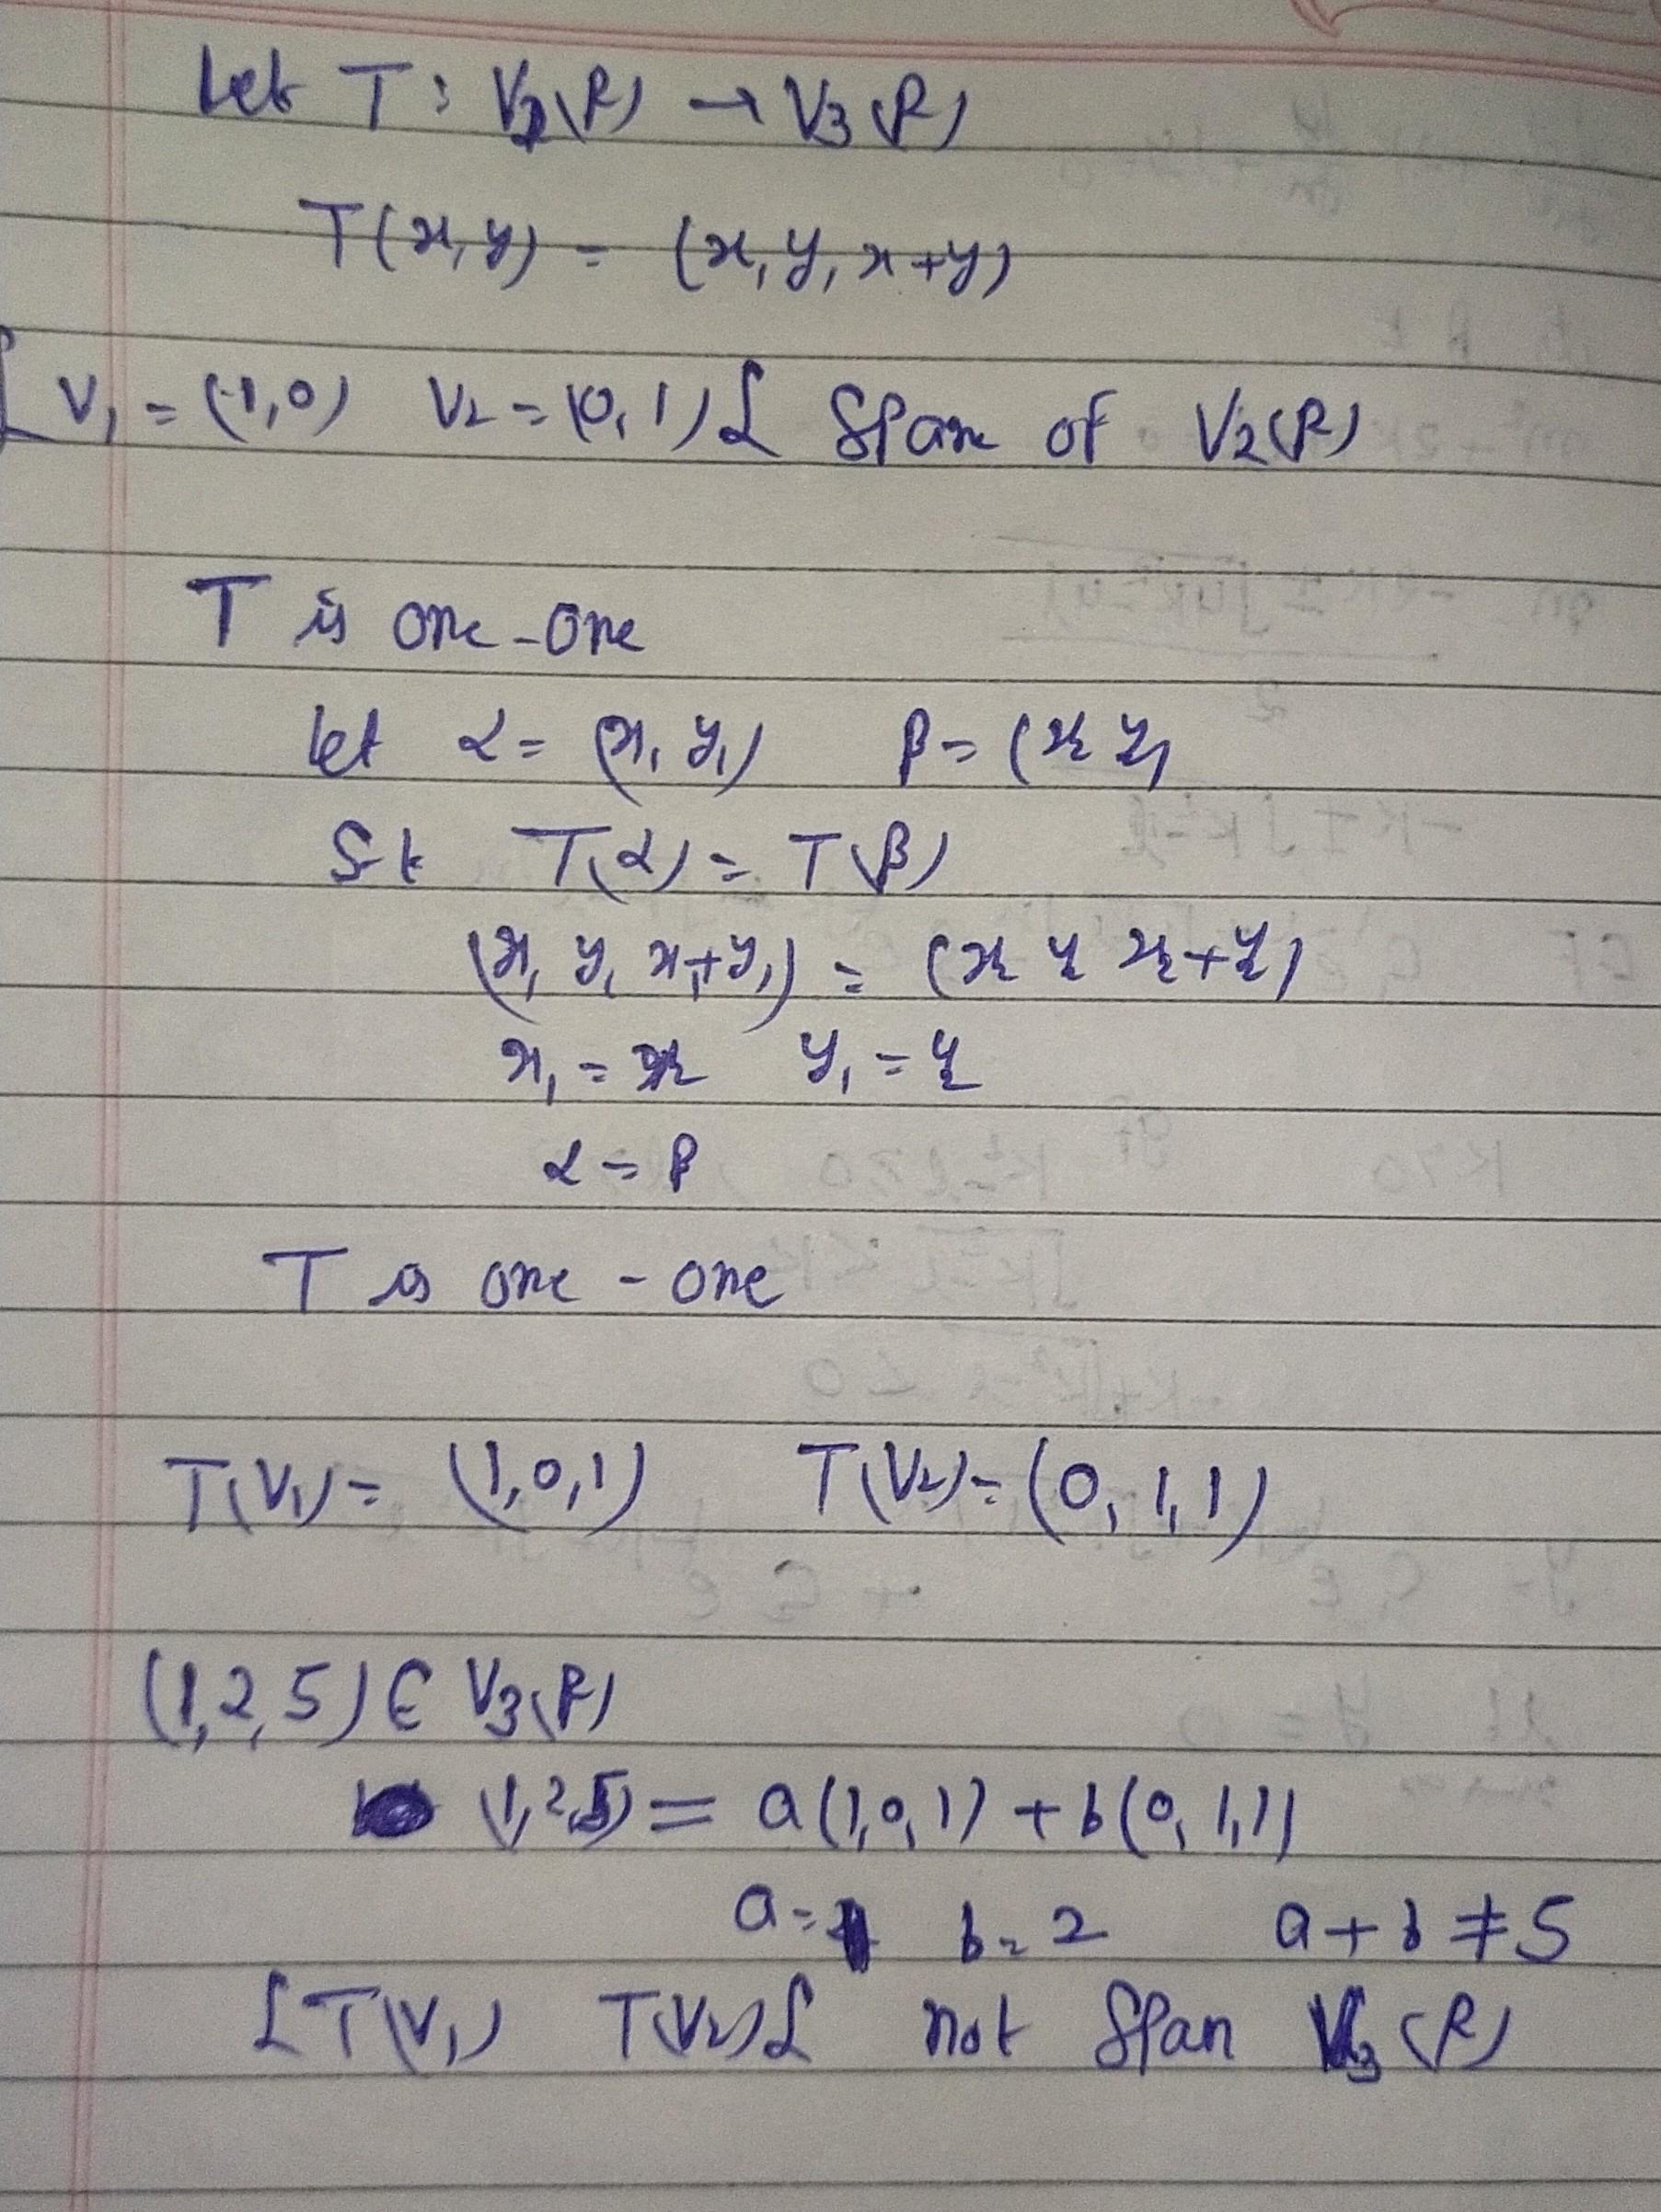 Let T : V₂(R) → V₃(R)
T(x, y) = (x, y, x+y)
{ V₁ = (1,0) V₂ = (0,1) } Span of V₂(R)
T is one-one
let α = (x₁ y₁) β = (x₂ y₂)
S.t T(α) = T(β)
(x₁ y₁ x₁+y₁) = (x₂ y₂ x₂+y₂)
x₁ = x₂ y₁ = y₂
α = β
T is one - one
T(V₁) = (1,0,1) T(V₂) = (0,1,1)
(1,2,5) ∈ V₃(R)
(1,2,5) = a(1,0,1) + b(0,1,1)
a=1 b=2 a+b≠5
{T(V₁) T(V₂)} not Span V₃(R)